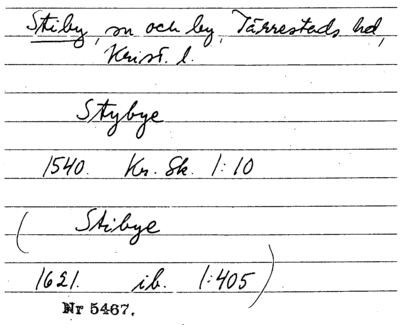 Stiby, sn och by, Tärresteds hd,
Krist. l.
Stybye
1540. Kr. Sk. 1:10
( Stibye
1621. ib. 1:405 )
Nr 5467.